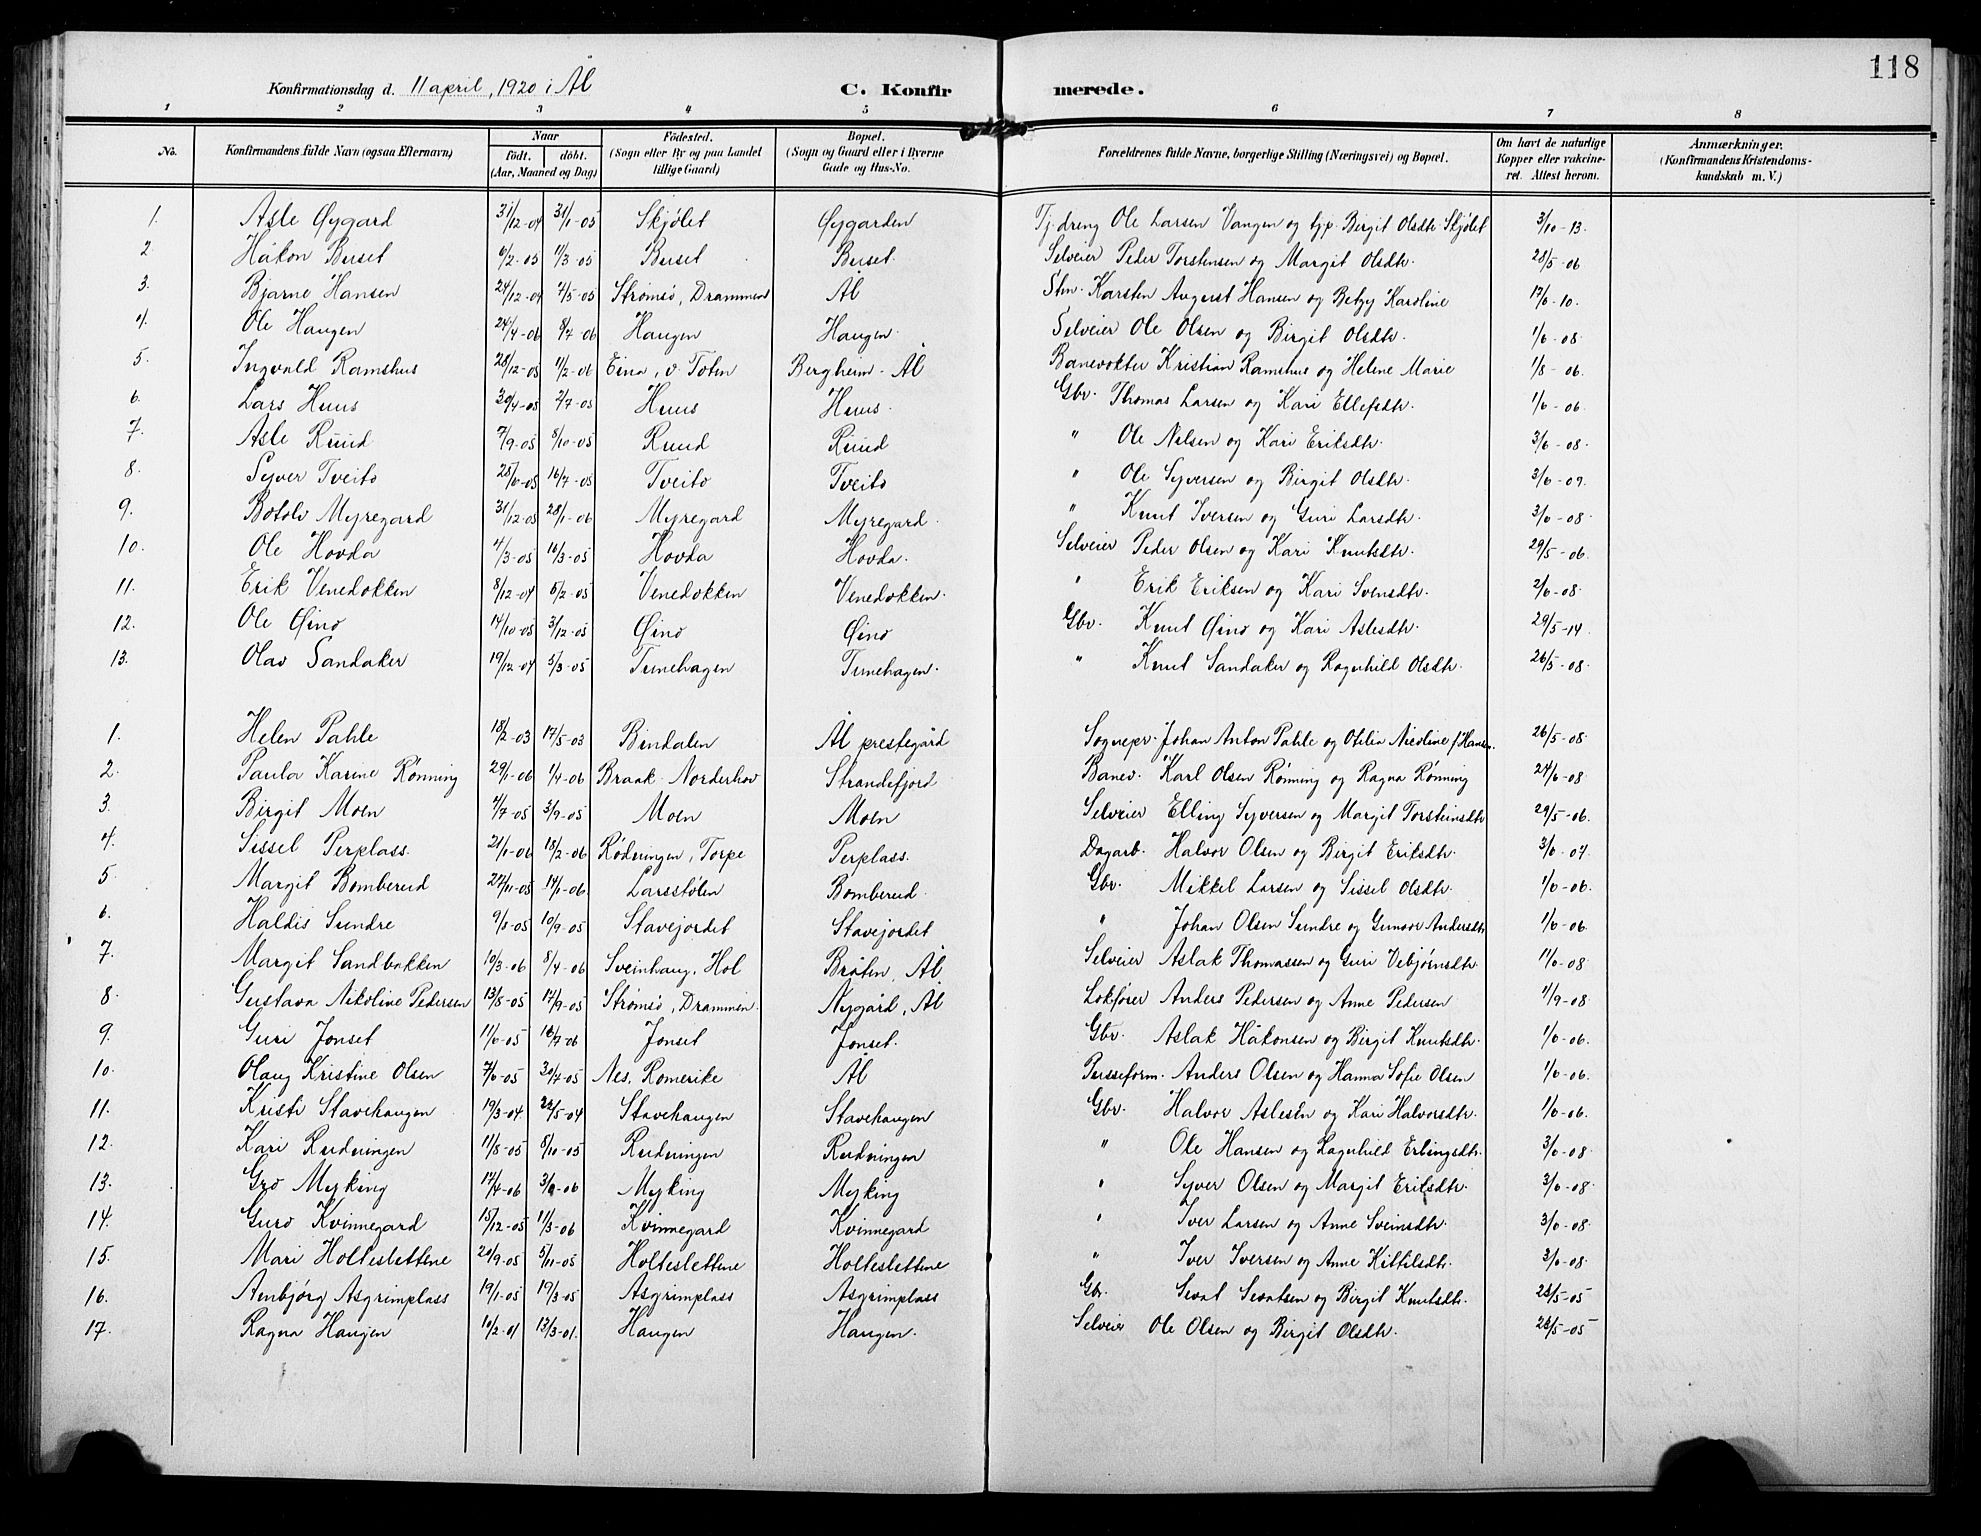 118
Konfirmationsdag d. 11 april, 1920 i Ål C. Konfirmerede.
1 2 3 4 5 6 7 8
No. Konfirmandens fulde Navn (ogsaa Efternavn) Naar født. døbt. (Aar, Maaned og Dag) Fødested. (Sogn eller By og paa Landet tillige Gaard) Bopæl. (Sogn og Gaard eller i Byerne Gade og Hus-No. Forældrenes fulde Navne, borgerlige Stilling (Næringsvei) og Bopæl. Om havt de naturlige Kopper eller vakcineret. Attest herom. Anmærkninger. (Konfirmandens Kristendomskundskab m. V.)
1. Asle Øygard 31/12-04 31/1-05 Skjølet Øygarden Tj.dreng Ole Larsen Vangen og tjp. Birgit Olsdtr. Skjølet 3/10-13.
2 Håkon Berset 6/2-05 11/3-05 Berset Berset. Selveier Peder Torstensen og Margit Olsdtr. 28/5-06
3. Bjarne Hansen 24/12-04 7/5-05 Strømsø, Drammen Ål Stm. Karsten August Hansen og Betzy Karoline 17/6-10.
4. Ole Haugen 24/4-06 8/7-06 Haugen Haugen. Selveier Ole Olsen og Birgit Olsdtr. 1/6-08.
5. Ingvald Ramshus 28/12-05 11/2-06 Eina, v. Toten Bergheim - Ål Banevokter Kristian Ramshus og Helene Marie 1/8-06.
6. Lars Huus 30/4-05 2/7-05 Huus Huus. Gbr. Thomas Larsen og Kari Ellefsdtr. 1/6-06.
7. Asle Ruud 7/9-05 8/10-05 Ruud Ruud " Ole Nilsen og Kari Eriksdtr. 3/6-08.
8. Syver Tveito 25/6-05 16/7-05 Tveito Tveito " Ole Syversen og Birgit Olsdtr. 3/6-09.
9. Botolv Myregard 31/12-05 28/1-06 Myregard Myregard. " Knut Iversen og Guri Larsdtr. 3/6-08.
10. Ole Hovda 4/3-05 16/3-05 Hovda Hovda. Selveier Peder Olsen og Kari Knutsdtr. 29/5-06.
11. Erik Venedokken 8/12-04 5/2-05 Venedokken Venedokken. " Erik Eriksen og Kari Svensdtr. 2/6-08.
12. Ole Øino 14/10-05 3/12-05 Øino Øino Gbr. Knut Øino og Kari Aslesdtr. 29/5-14.
13. Olav Sandaker 19/12-04 5/3-05 Tunehagen Tunehagen. " Knut Sandaker og Ragnhild Olsdtr. 26/5-08.
1. Helen Pahle 18/2-03 17/5-03 Bindalen Ål prestegård Sognepr. Johan Anton Pahle og Otilia Nicoline f. Hansen. 26/5-08.
2. Paula Karine Rønning 29/1-06 1/4-06 Braak. Norderhov Strandefjord Banev. Karl Olsen Rønning og Ragna Rønning 24/6-08
3. Birgit Moen 4/7-05 3/9-05 Moen Moen Selveier Elling Syversen og Margit Torsteinsdtr 29/5-06.
4. Sissel Perplass. 21/1-06 18/2-06 Rødningen, Torpe Perplass. Dagarb. Halvor Olsen og Birgit Eriksdtr. 3/6-07
5. Margit Bomberud 22/11-05 14/1-06 Larsstølen Bomberud. Gbr. Mikkel Larsen og Sissel Olsdtr. 1/6-06.
6. Haldis Sundre 9/8-05 10/9-05 Stavejordet Stavejordet " Johan Olsen Sundre og Gunvor Andersdtr 1/6-06.
7. Margit Sandbakken 10/3-06 8/4-06 Sveinhaug, Hol Bråten, Ål Selveier Aslak Thomassen og Guri Vebjørnsdtr. 11/6-08
8. Gustava Nikoline Pedersen 13/8-05 17/9-05 Strømsø, Drammen. Nygård, Ål Lokfører Anders Pedersen og Anne Pedersen 1/9-08.
9. Guri Jonset 11/6-05 16/7-06 Jonset Jonset. Gbr. Aslak Håkonsen og Birgit Knutsdtr. 1/6-06.
10. Olaug Kristine Olsen 7/6-05 30/7-05 Nes, Romerike Ål Pusseform. Anders Olsen og Hanna Sofie Olsen 1/6-06.
11. Kristi Stavehaugen 19/3-04 22/5-04 Stavehaugen Stavehaugen Gbr. Halvor Aslesen og Kari Halvorsdtr. 1/6-06.
12. Kari Rudningen 11/8-05 8/10-05 Rudningen Rudningen " Ole Hansen og Ragnhild Erlingsdtr. 3/6-08.
13. Gro Myking 17/4-06 3/6-06 Myking Myking " Syver Olsen og Margit Eriksdtr. 3/6-08.
14. Guro Kvinnegard 15/12-05 11/3-06 Kvinnegard Kvinnegard " Iver Larsen og Anne Sveinsdtr. 3/6-08.
15. Mari Holteslettene 20/9-05 5/11-05 Holteslettene Holteslettene " Iver Iversen og Anne Kittilsdtr. 3/6-08.
16. Arnbjørg Asgrimplass 19/1-05 19/3-05 Asgrimplass Asgrimplass Gbr. Sevat Sevatsen og Birgit Knutsdtr. 28/5-05
17. Ragna Haugen 10/2-01 13/3-01. Haugen Haugen. Selveier Ole Olsen og Birgit Olsdtr. 28/5-05